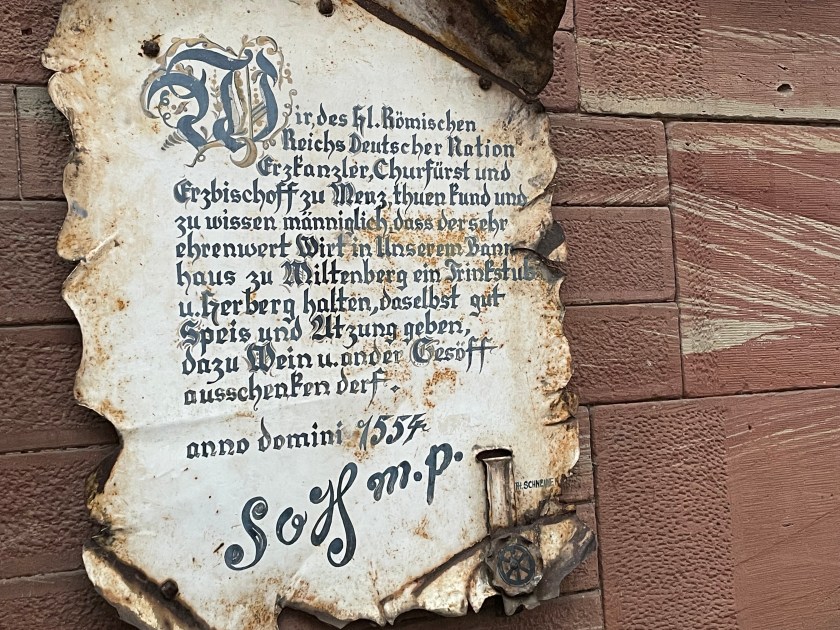 Wir, des Hl. Römischen
Reichs Deutscher Nation
Erzkanzler, Churfürst und
Erzbischoff zu Menz, thuen kund und
zu wissen männiglich, dass der sehr
ehrenwert Wirt in Unserem Bann
haus zu Miltenberg ein Trinkstub
u. Herberg halten, daselbst gut
Speis und Atzung geben,
dazu Wein u. ander Gesöff
ausschenken derf.
anno domini 1554
m.p.
SCHNEIDER